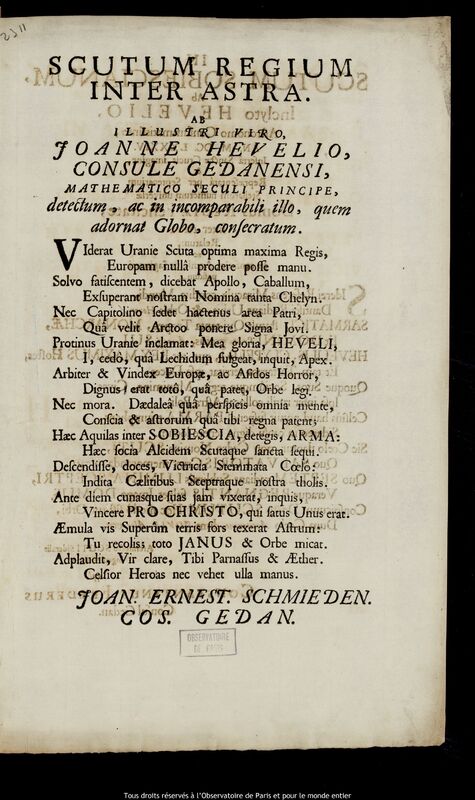 SCUTUM REGIUM
INTER ASTRA.
AB
ILLUSTRI VIRO,
JOANNE HEVELIO,
CONSULE GEDANENSI,
MATHEMATICO SECULI PRINCIPE,
detectum, ac in incomparabili illo, quem
adornat Globo, consecratum.
VIderat Uranie Scuta optima maxima Regis,
Europam nullâ prodere posse manu.
Solvo fatiscentem, dicebat Apollo, Caballum,
Exsuperant nostram Nomina tanta Chelyn.
Nec Capitolino sedet hactenus area Patri,
Quâ velit Arctoo ponere Signa Jovi.
Protinus Uranie inclamat: Mea gloria, HEVELI,
I, cedò, quâ Lechidum fulgeat, inquit, Apex.
Arbiter & Vindex Europæ, ac Asidos Horror,
Dignus erat totô, quâ patet, Orbe legi.
Nec mora. Dædaleâ quâ perspicis omnia mente,
Conscia & astrorum quâ tibi regna patent;
Hæc Aquilas inter SOBIESCIA, detegis, ARMA:
Hæc socia Alcidem Scutaque sancta sequi.
Descendisse, doces, Victricia Stemmata Cœlo:
Indita Cælitibus Sceptraque nostra tholis.
Ante diem cunasque suas jam vixerat, inquis,
Vincere PRO CHRISTO, qui satus Unus erat.
Æmula vis Superûm terris sors texerat Astrum:
Tu recolis; toto JANUS & Orbe micat.
Adplaudit, Vir clare, Tibi Parnassus & Æther.
Celsior Heroas nec vehet ulla manus.
JOAN. ERNEST. SCHMIEDEN.
COS. GEDAN.
OBSERVATOIRE
DE PARIS
Tous droits réservés à l'Observatoire de Paris et pour le monde entier